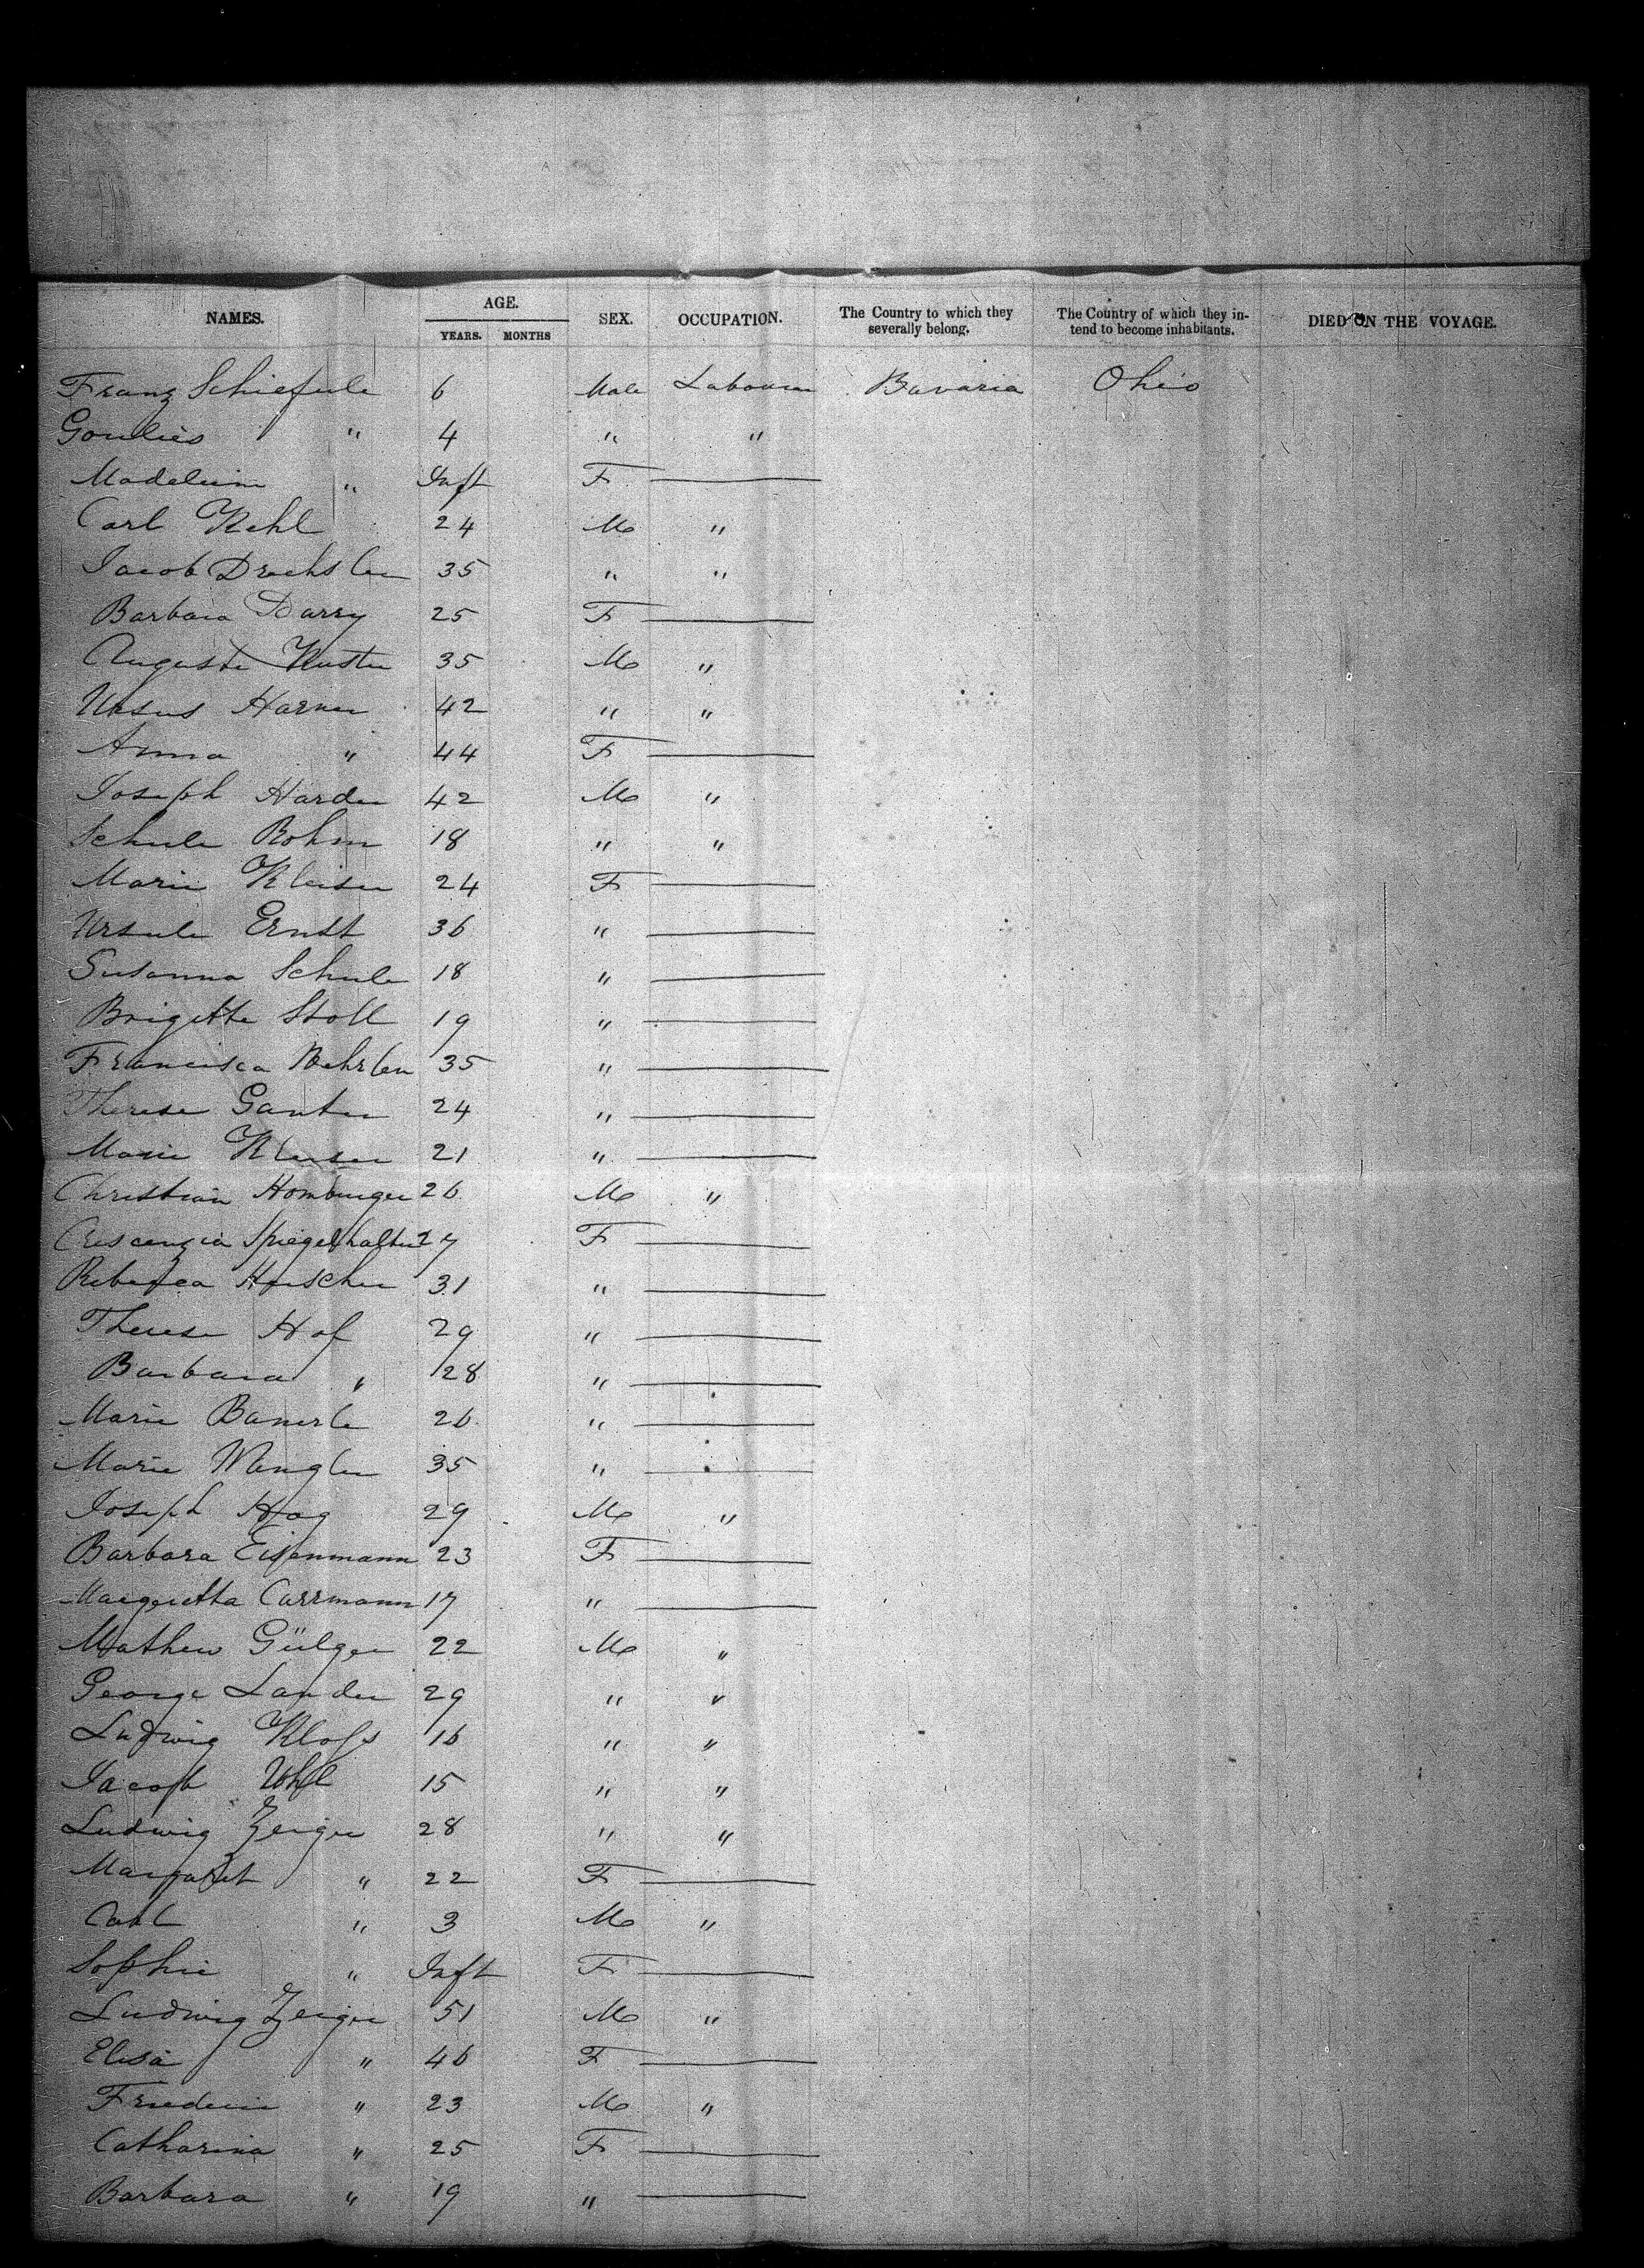 NAMES. AGE. YEARS. MONTHS SEX. OCCUPATION. The Country to which they severally belong. The Country of which they intend to become inhabitants. DIED ON THE VOYAGE.
Franz Schiefule 6 Male Labourer Bavaria Ohio
4 " "
Madeleine " Inft F
Carl Kehl 24 M "
Jacob Drechsler 35 " "
Barbara Darry 25 F
Auguste Kuster 35 M "
Ursus Harner 42 " "
Anna " 44 F
Joseph Harder 42 M "
Schule Rohm 18 " "
Marie Kleiser 24 F
Ursule Ernst 36 "
Susanna Schule 18 "
Brigette Stoll 19 "
Francisca 35 "
Therese Ganter 24 "
Marie Kleiser 21 "
Christian Homburger 26 M "
Crescenzia Spiegelhalter 27 F
Rebecca 31 "
Therese Hof 29 "
Barbara " 28 "
Marie 26 "
Marie Wengler 35 "
Joseph Hog 29 M "
Barbara Eisenmann 23 F
Margretta Carrmann 17 "
Mathew Gülger 22 M "
George Lander 29 " "
Ludwig Kloss 16 " "
Jacob Uhl 15 " "
Ludwig Zeiger 28 " "
Margaret " 22 F
Carl " 3 M "
Sophie " Inft F
Ludwig Zeiger 51 M "
Elisa " 46 F
Frederic " 23 M "
Catharina " 25 F
Barbara " 19 "